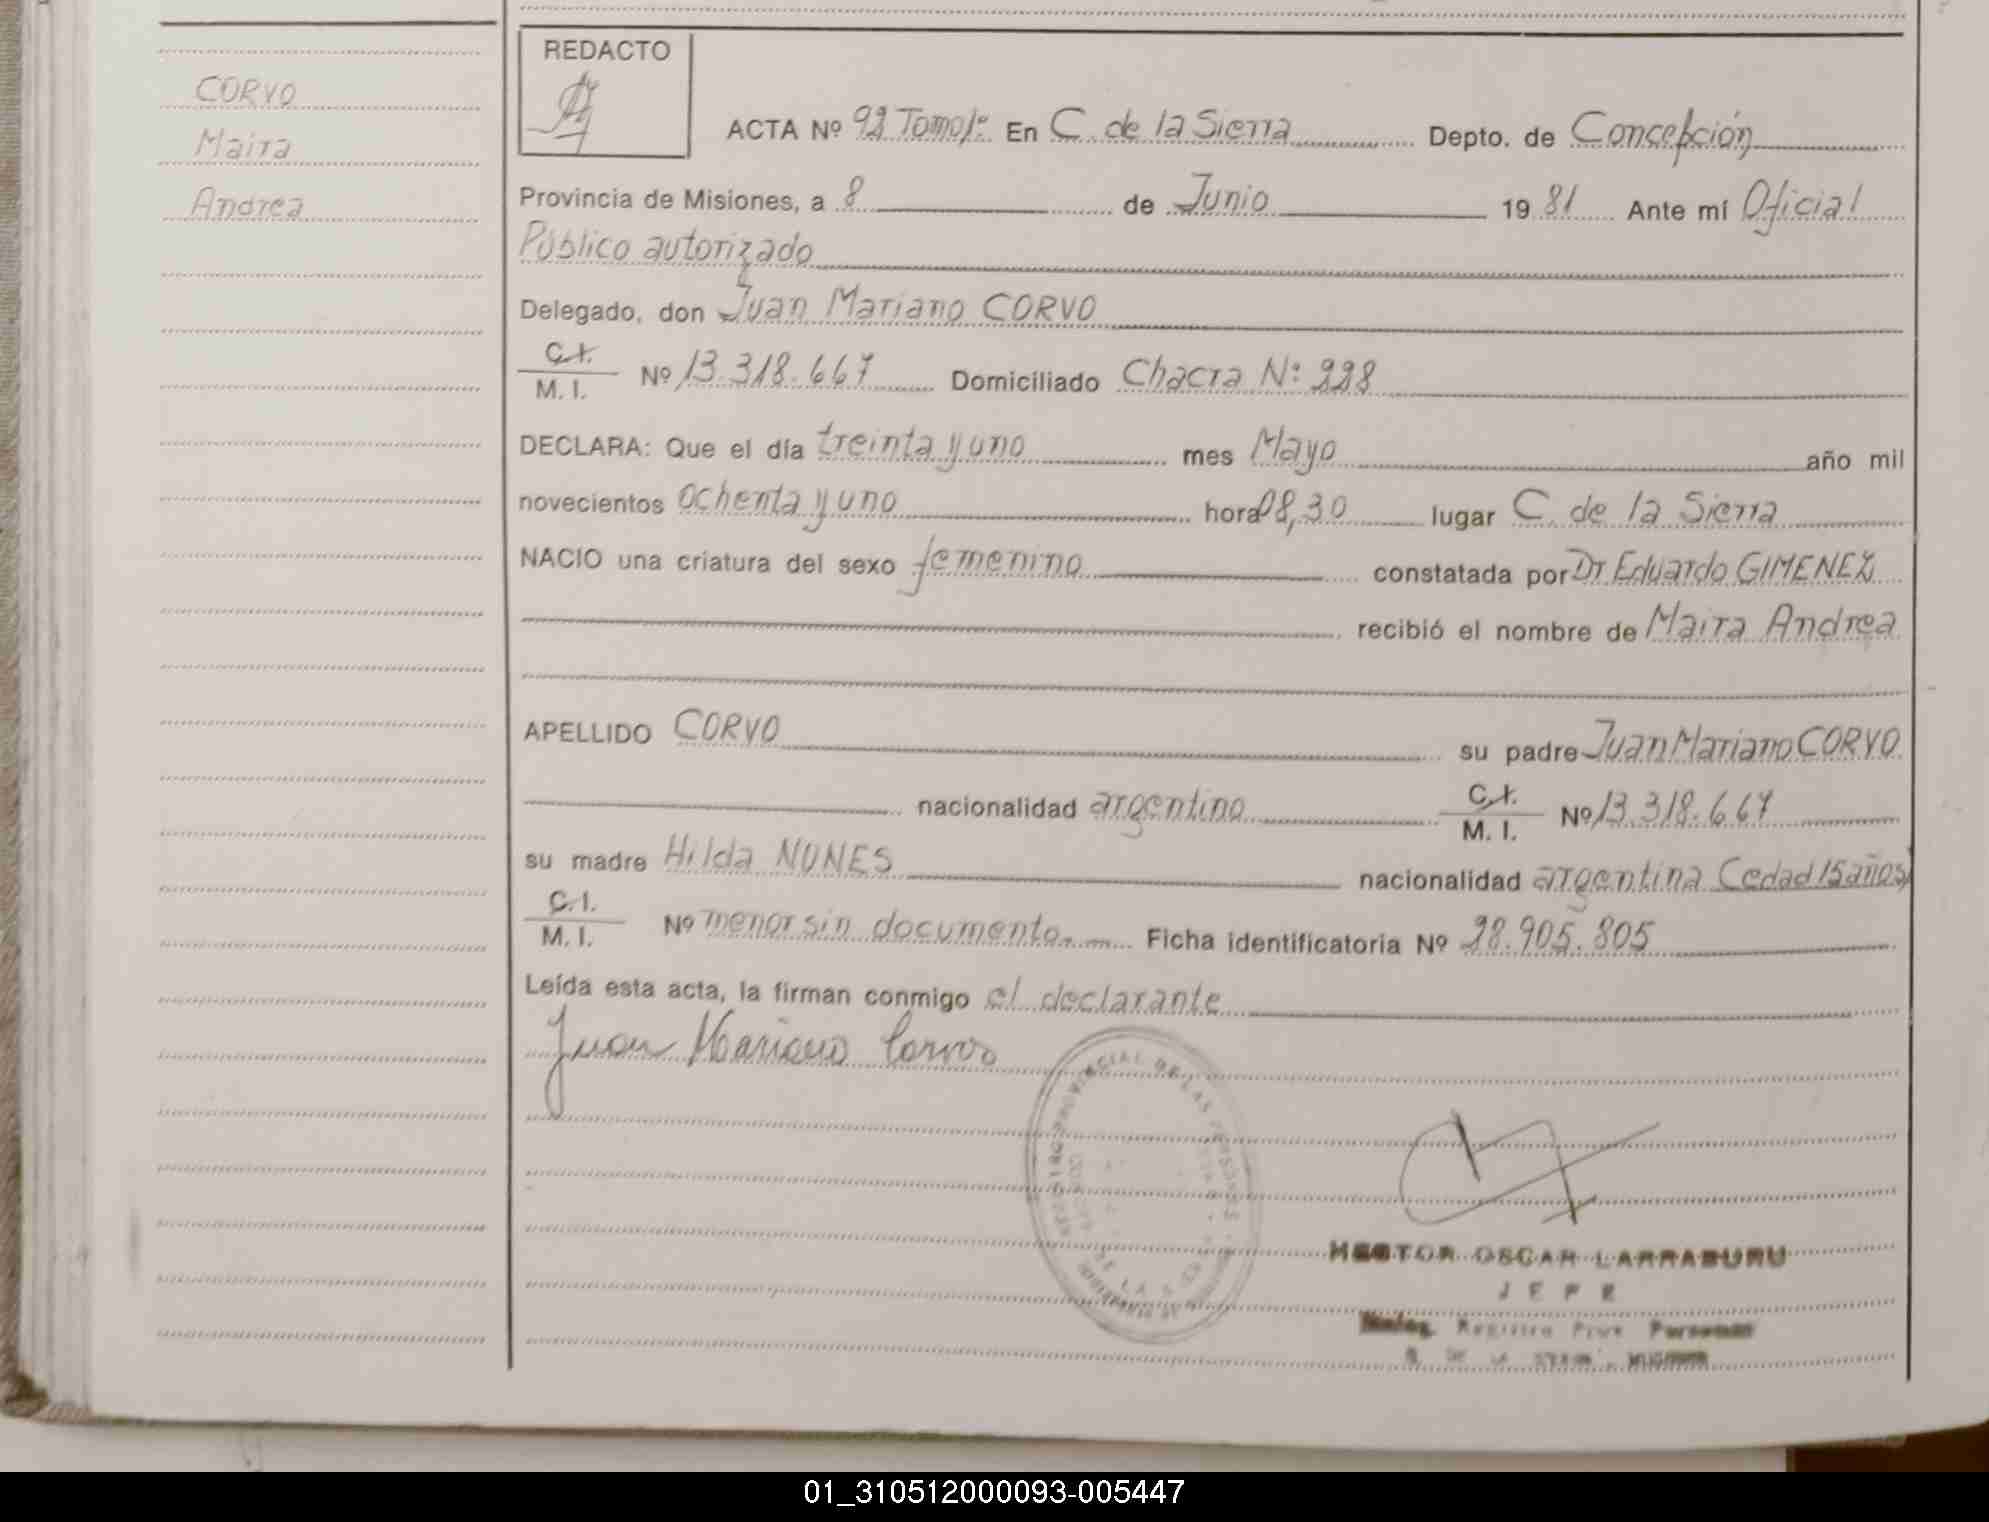 CORVO
Maira
Andrea
REDACTO
ACTA Nº 92 Tomo Iº En C. de la Sierra Depto. de Concepción
Provincia de Misiones, a 8 de Junio 1981 Ante mí Oficial
Público autorizado
Delegado, don Juan Mariano CORVO
C.I.
M. I. Nº 13.318.667 Domiciliado Chacra Nº 228
DECLARA: Que el día treinta y uno mes Mayo año mil
novecientos ochenta y uno hora 08,30 lugar C. de la Sierra
NACIO una criatura del sexo femenino constatada por Dr Eduardo GIMENEZ
recibió el nombre de Maira Andrea
APELLIDO CORVO su padre Juan Mariano CORVO
nacionalidad argentino C.I. M. I. Nº 13.318.667
su madre Hilda NUNES nacionalidad argentina (edad 15 años)
C.I.
M. I. Nº menor sin documento. Ficha identificatoria Nº 28.905.805
Leída esta acta, la firman conmigo el declarante
Juan Mariano Corvo
REGISTRO PROVINCIAL DE LAS PERSONAS
HECTOR OSCAR LARRABURU
JEFE
Registro Prov. Personas
C. DE LA SIERRA - MISIONES
01_310512000093-005447